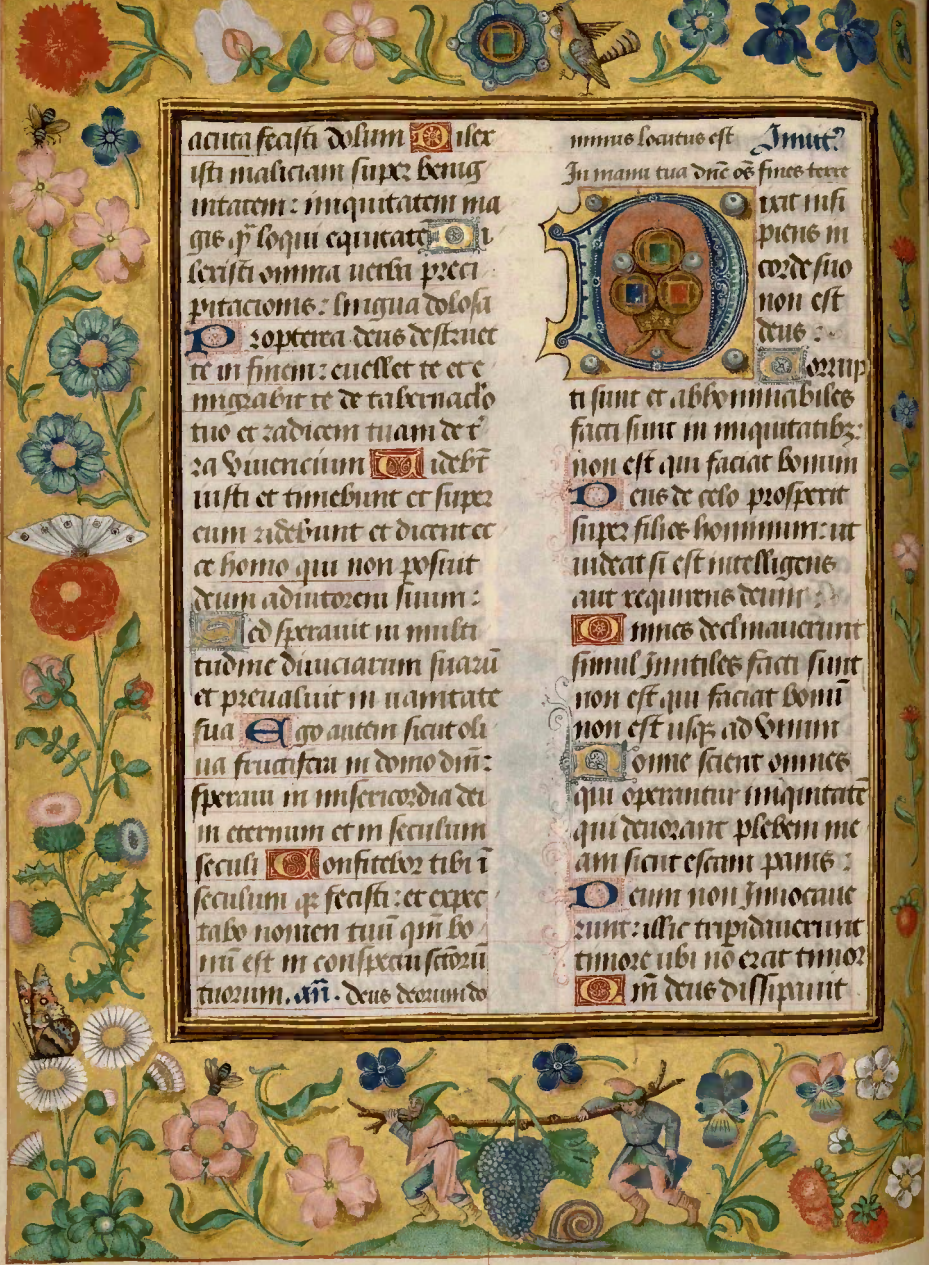 acuta fecisti dolum Dilex
isti maliciam super benig
nitatem: iniquitatem ma
gis qȝ loqui equitatē Di
lexisti omnia uerba preci
pitacionis: lingua dolosa
Propterea deus destruet
te in finem: euellet te et e
migrabit te de tabernaclo
tuo et radicem tuam de t'
ra viuencium Videbūt
iusti et timebunt et super
eum ridebunt et dicent ec
ce homo qui non posuit
deum adiutorem suum:
Sed sperauit in multi
tudine diuiciarum suarū
et preualuit in uanitate
sua Ego autem sicut oli
ua fructifera in domo dnī:
speraui in misericordia dei
in eternum et in seculum
seculi Confitebor tibi ī
seculum qr fecisti: et expec
tabo nomen tuū qm̄ bo
nū est in conspectu sctorū
tuorum. añ. deus deorum do
minus locutus est Inuit'
In manu tua dn̄e oēs fines terre
Dixit insi
piens in
corde suo
non est
deus:
Corrup
ti sunt et abhominabiles
facti sunt in iniquitatibȝ:
non est qui faciat bonum
Deus de celo prospexit
super filios hominum: ut
uideat si est intelligens
aut requirens deum:
Omnes declinauerunt
simul Inutiles facti sunt
non est qui faciat bonū
non est usqȝ ad vnum
Nonne scient omnes
qui operantur iniquitatē
qui deuorant plebem me
am sicut escam panis:
Deum non Inuocaue
runt: illic tripidauerunt
timore ubi nō erat timor
Qm̄ deus dissipauit